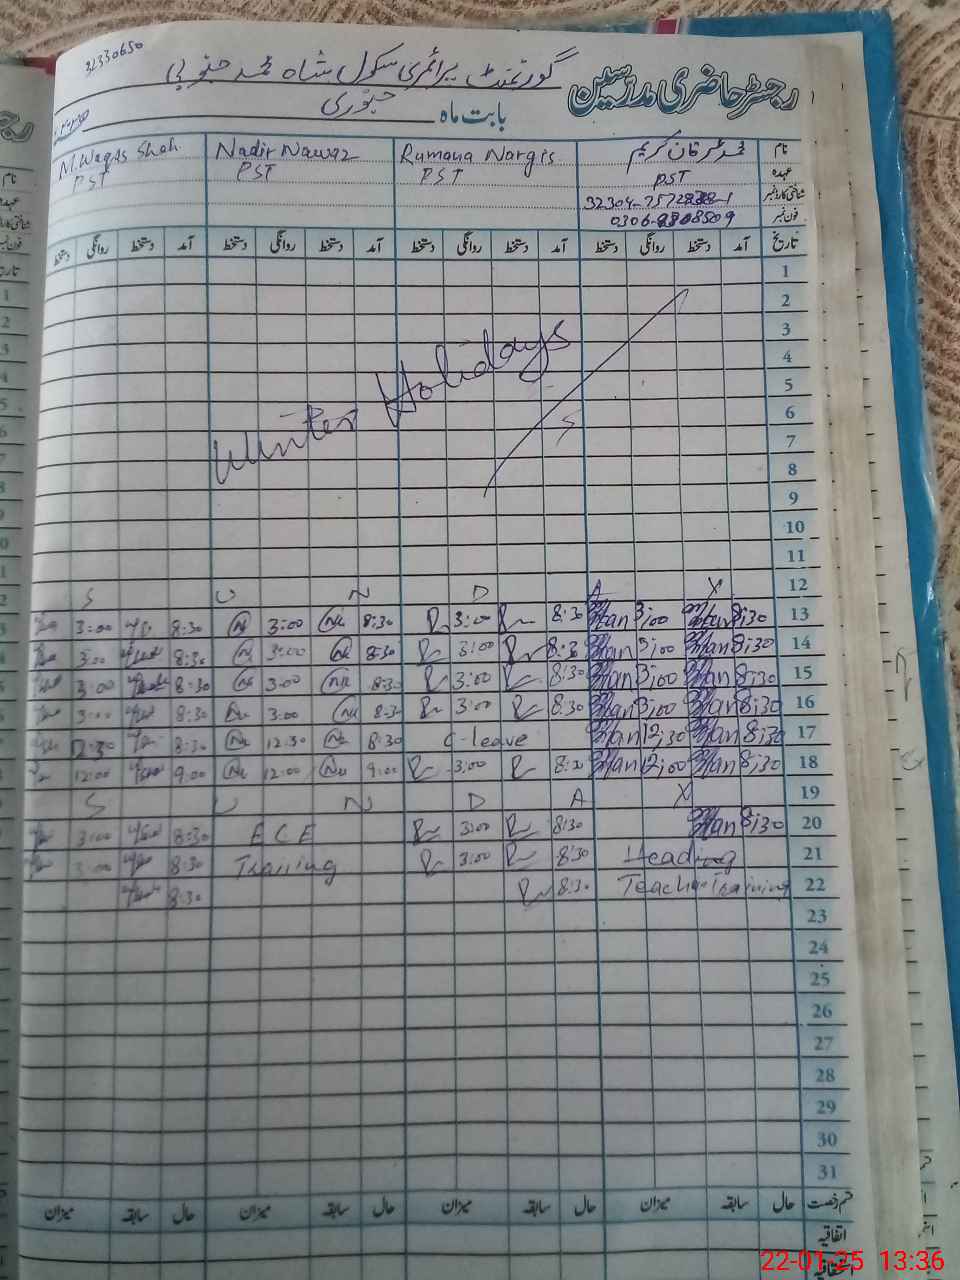 32330650
رجسٹر حاضری مدرسین
گورنمنٹ پرائمری سکول شاہ محمد جنوبی
بابت ماہ جنوری
نام محمد عرفان کریم Rumana Nargis Nadir Nawaz M.Waqas Shah
عہدہ PST PST PST PST
شناختی کارڈ نمبر
فون نمبر
تاریخ آمد دستخط روانگی دستخط آمد دستخط روانگی دستخط آمد دستخط روانگی دستخط آمد دستخط روانگی دستخط
1
2
3
4
5
6
7
8
9
10
11
Winter Holidays
S U N D A Y 12
3:00 8:30 3:00 8:30 3:00 8:30 3;00 8;30 13
3:00 8:30 3:00 8:30 3:00 8:30 3;00 8;30 14
3:00 8:30 3:00 8:30 3:00 8:30 3;00 8;30 15
3:00 8:30 3:00 8:30 3:00 8:30 3;00 8;30 16
12:30 8:30 12:30 8:30 C-leave 12;30 8;30 17
12:00 9:00 12:00 9:00 3:00 8:30 12;00 8;30 18
S U N D A Y 19
3:00 8:30 ECE 3:00 8:30 8;30 20
3:00 8:30 Training 3:00 8:30 Heading 21
8:30 8:30 Teacher Training 22
23
24
25
26
27
28
29
30
31
قسم رخصت حال سابقہ میزان حال سابقہ میزان حال سابقہ میزان حال سابقہ میزان
اتفاقیہ
استحقاقیہ
22-01-25 13:36